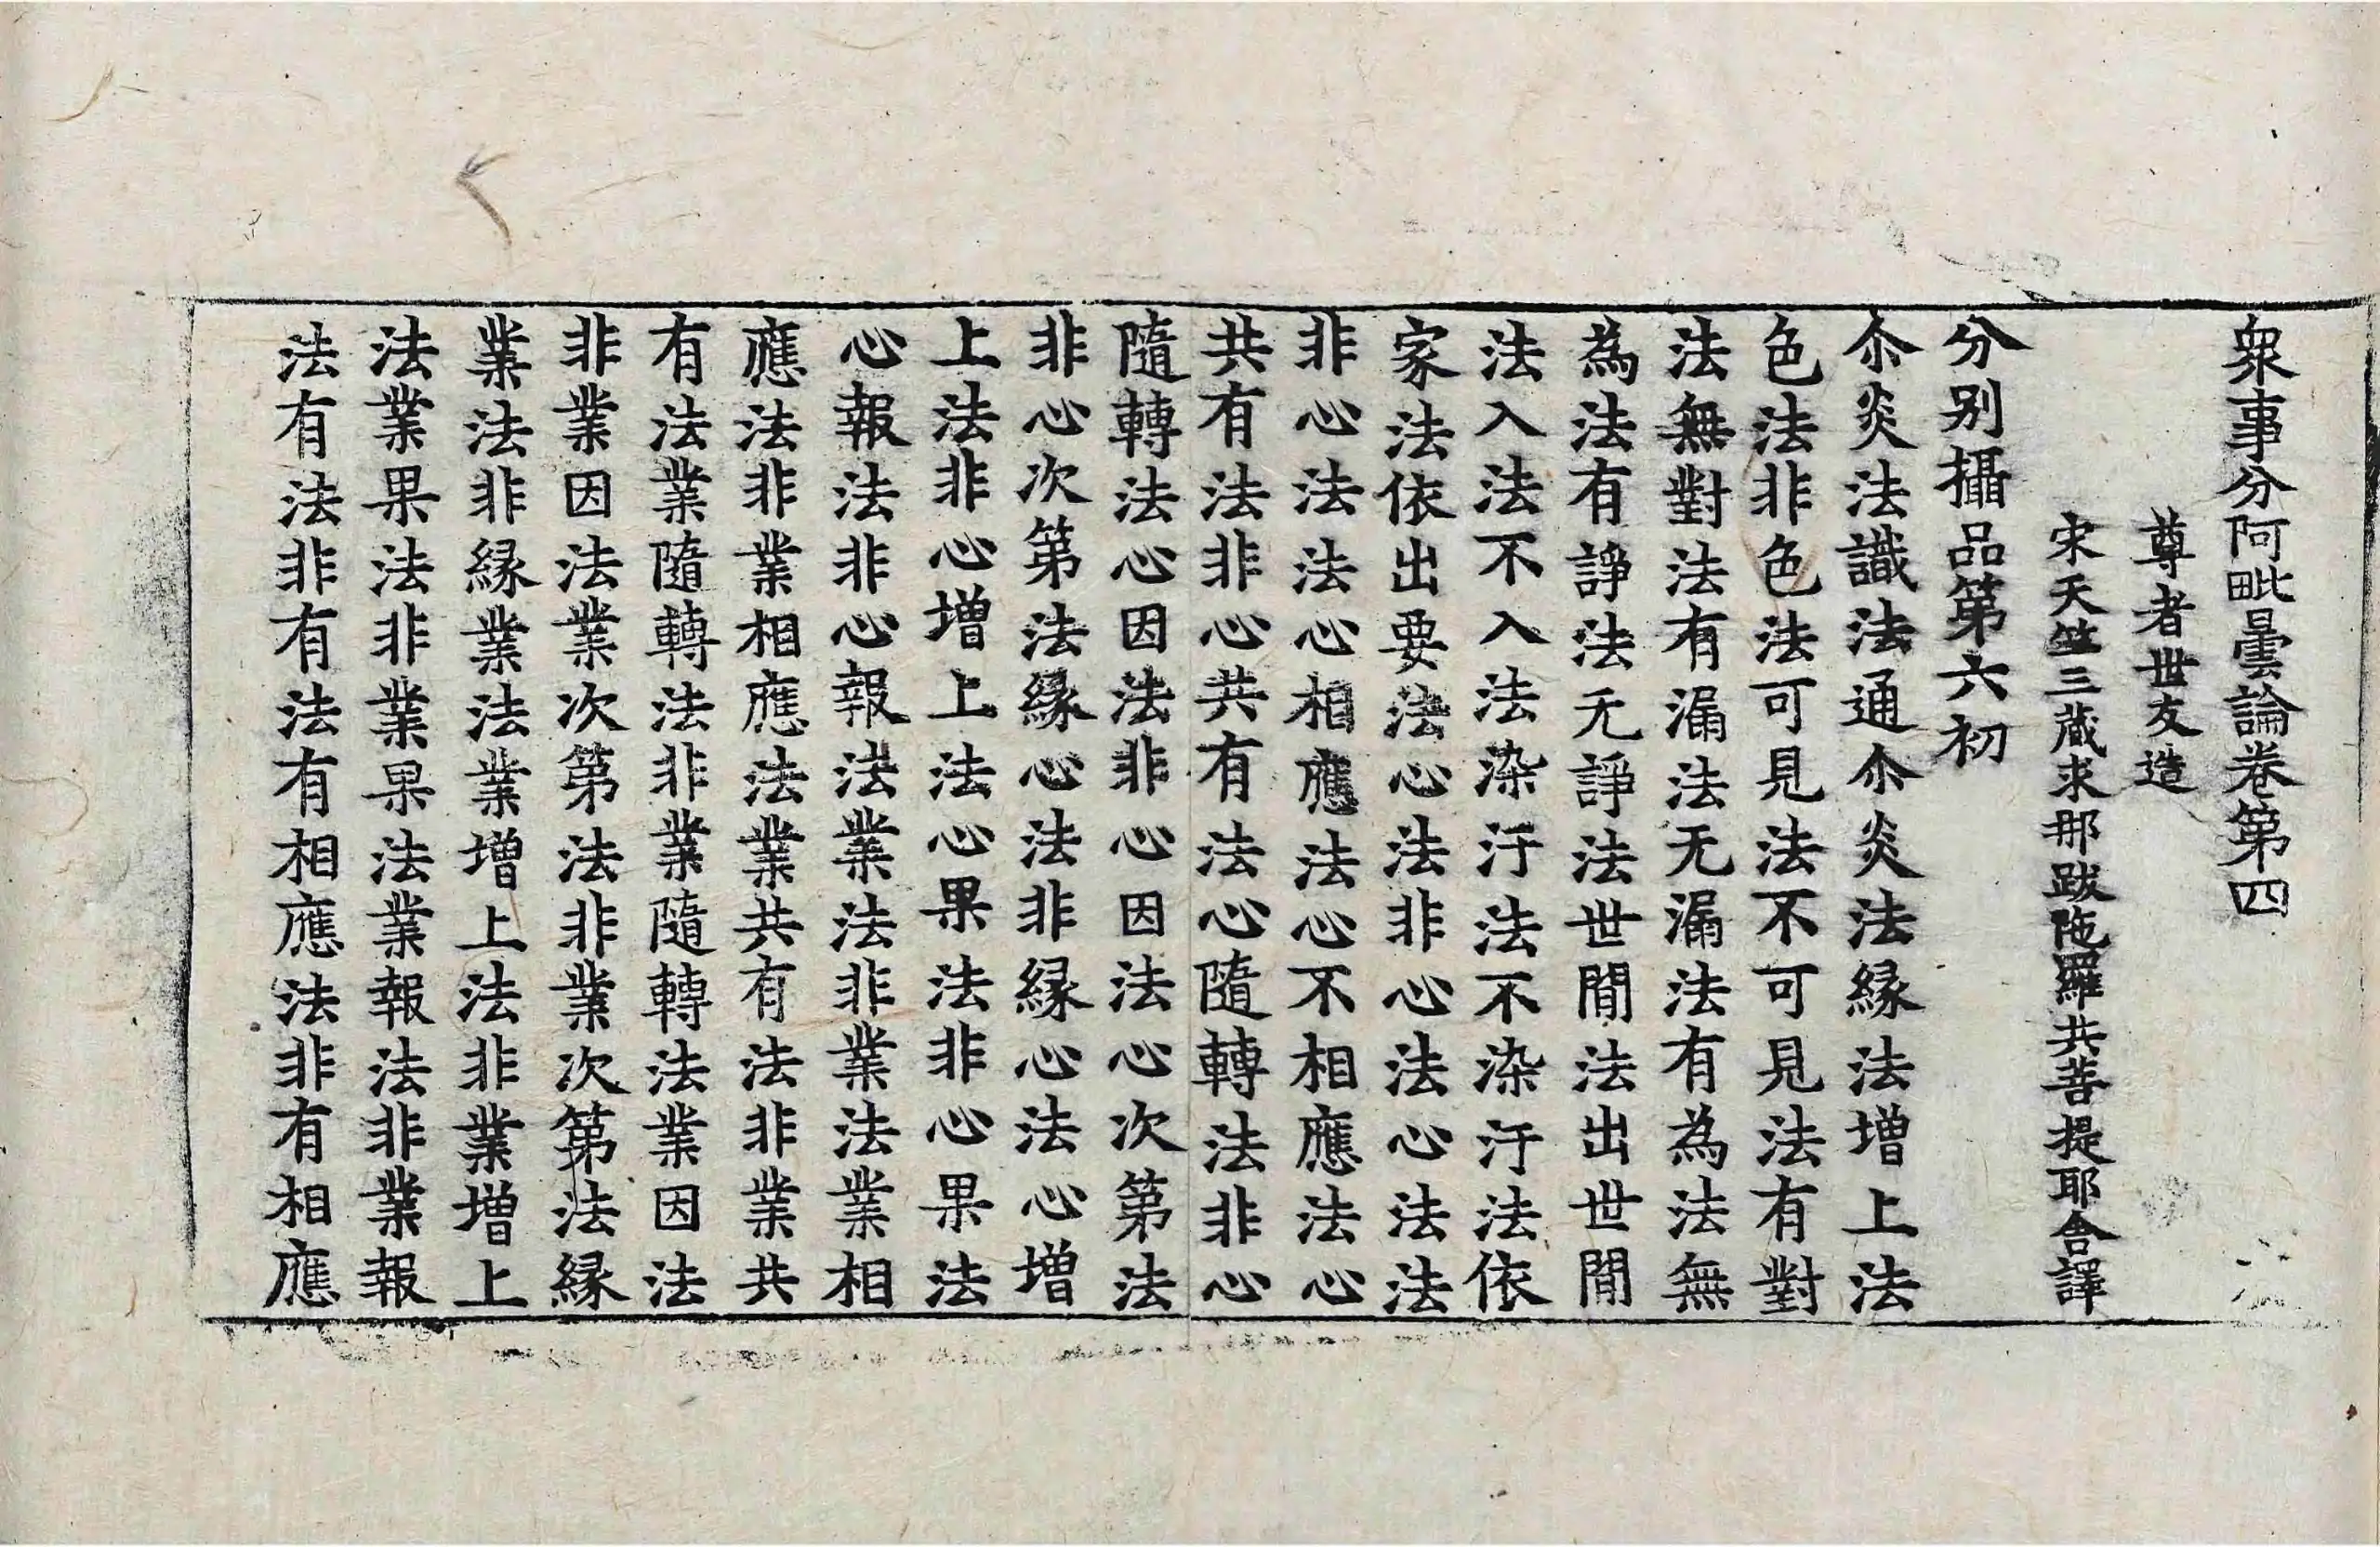 衆事分阿毗曇論卷第四
尊者世友造
宋天竺三蔵求那跋陁羅共菩提耶舎譯
分别攝品第六初
尒炎法識法通尒炎法縁法增上法
色法非色法可見法不可見法有對
法無對法有漏法无漏法有為法無
為法有諍法无諍法世間法出世間
法入法不入法染汙法不染汙法依
家法依出要法心法非心法心法法
非心法法心相應法心不相應法心
共有法非心共有法心隨轉法非心
隨轉法心因法非心因法心次第法
非心次第法縁心法非縁心法心增
上法非心增上法心果法非心果法
心報法非心報法業法非業法業相
應法非業相應法業共有法非業共
有法業隨轉法非業隨轉法業因法
非業因法業次第法非業次第法縁
業法非縁業法業增上法非業增上
法業果法非業果法業報法非業報
法有法非有法有相應法非有相應